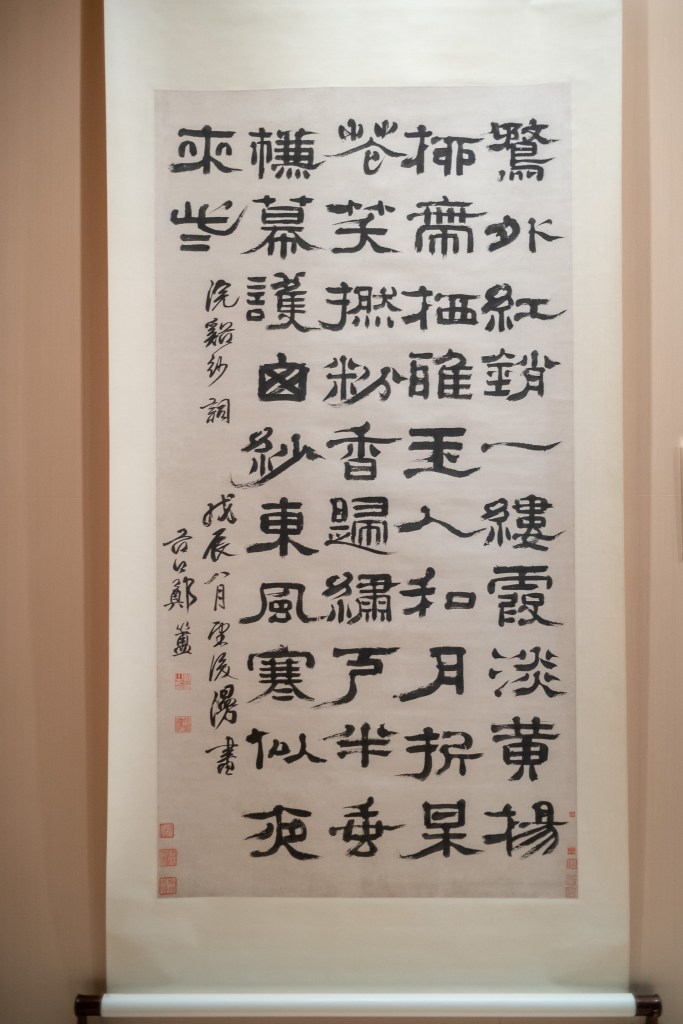 鶩外紅銷一縷霞淡黃楊
柳帶栖雅玉人和月折呆
花笑撚粉香歸繡戶半垂
槏幕護囪紗東風寒似夜
來些
浣谿紗詞 戊辰八月望後漫書
谷口鄭簠